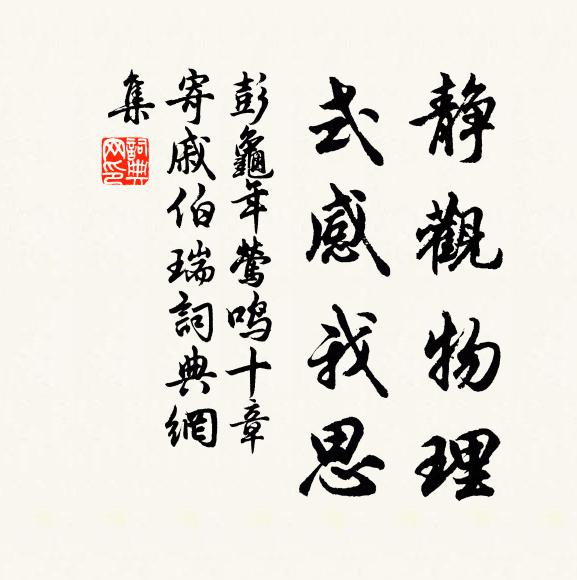 静觀物理
式感我思
彭龜年鶯鳴十章
寄戚伯瑞詞典網
集
詞典
网印